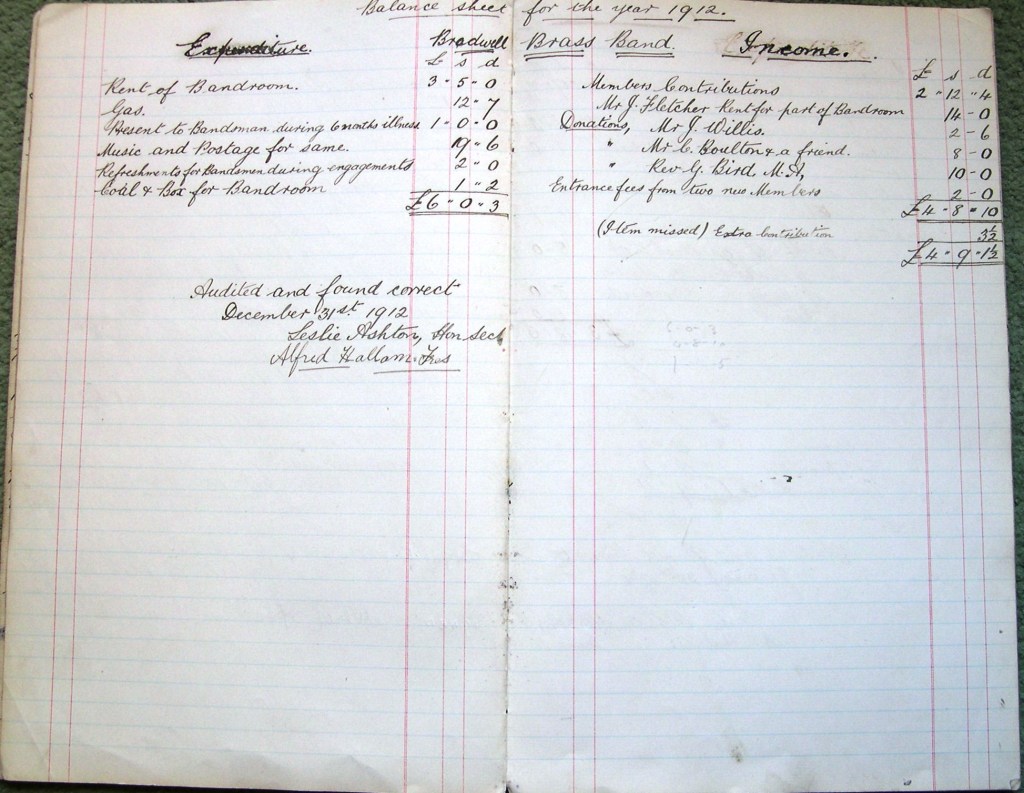 Balance sheet for the year 1912.
Bradwell Brass Band.
Expenditure.
£ s d
Rent of Bandroom. 3 - 5 - 0
Gas. 12 " 7
Present to Bandsman during 6 months illness 1 - 0 - 0
Music and Postage for same. 19 " 6
Refreshments for Bandsmen during engagements 2 " 0
Coal & Box for Bandroom 1 " 2
£6 - 0 - 3
Audited and found correct
December 31st 1912
Leslie Ashton, Hon sec
Alfred Hallam. Tres
Income.
£ s d
Members Contributions 2 " 12 " 4
Mr J. Fletcher Rent for part of Bandroom 14 - 0
Donations, Mr J. Willis. 2 - 6
" Mr C. Boulton & a friend. 8 - 0
" Rev G. Bird M.A, 10 - 0
Entrance fees from two new Members 2 - 0
£4 - 8 - 10
(Item missed) Extra Contribution 3½
£4 " 9 - 1½
6 - 0 - 3